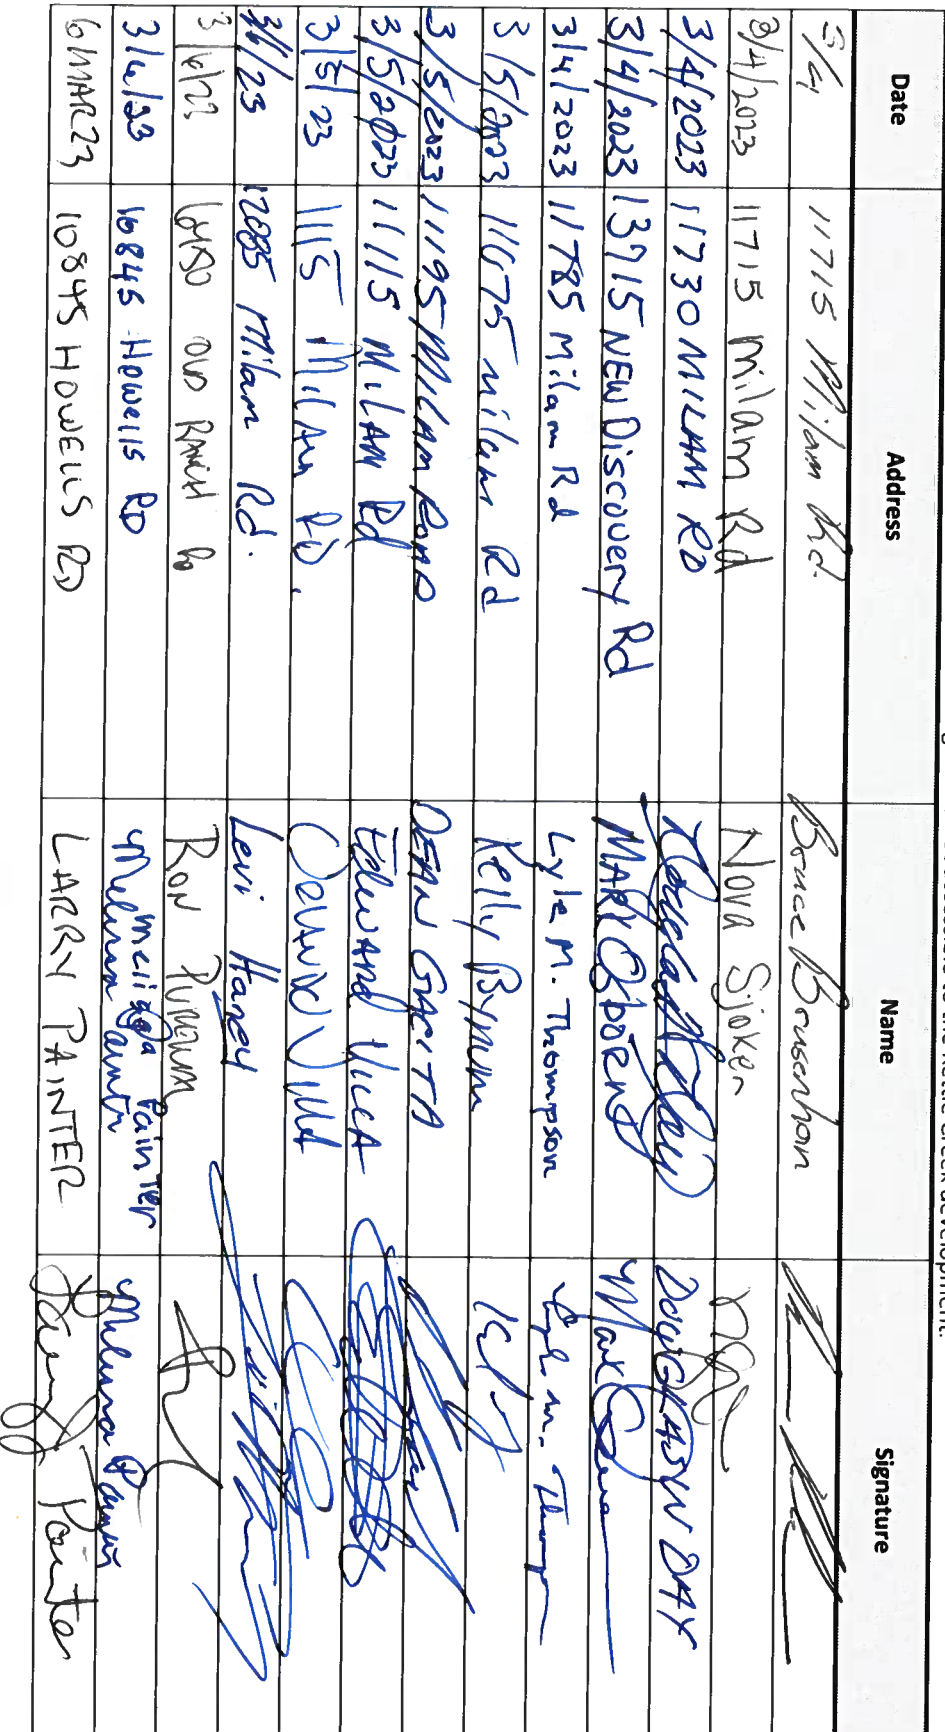 Creek development.
Date Address Name Signature
3/4 11715 Milam Rd. Bruce Bousenhon
3/4/2023 11715 Milam Rd Nova Sjoken
3/4/2023 11730 MILAM RD DOUGLAS W DAY
3/4/2023 13715 NEW Discovery Rd MARK OSBORNE
3/4/2023 11785 Milam Rd Lyle M. Thompson Lyle M. Thompson
3/5/2023 11675 milam Rd Kelly Bynum
3/5/2023 11195 MILAM ROAD DEAN
3/5/2023 11115 MILAM Rd Edward VILLA
3/5/23 1115 Milam RD. VILLA
3/6/23 12085 Milam Rd. Levi Haney
3/6/23 6450 OLD RANCH RD RON
3/6/23 10845 Howells RD Melissa Painter Melissa Painter Melissa Painter
6MAR23 10845 HOWELLS RD LARRY PAINTER Larry Painter